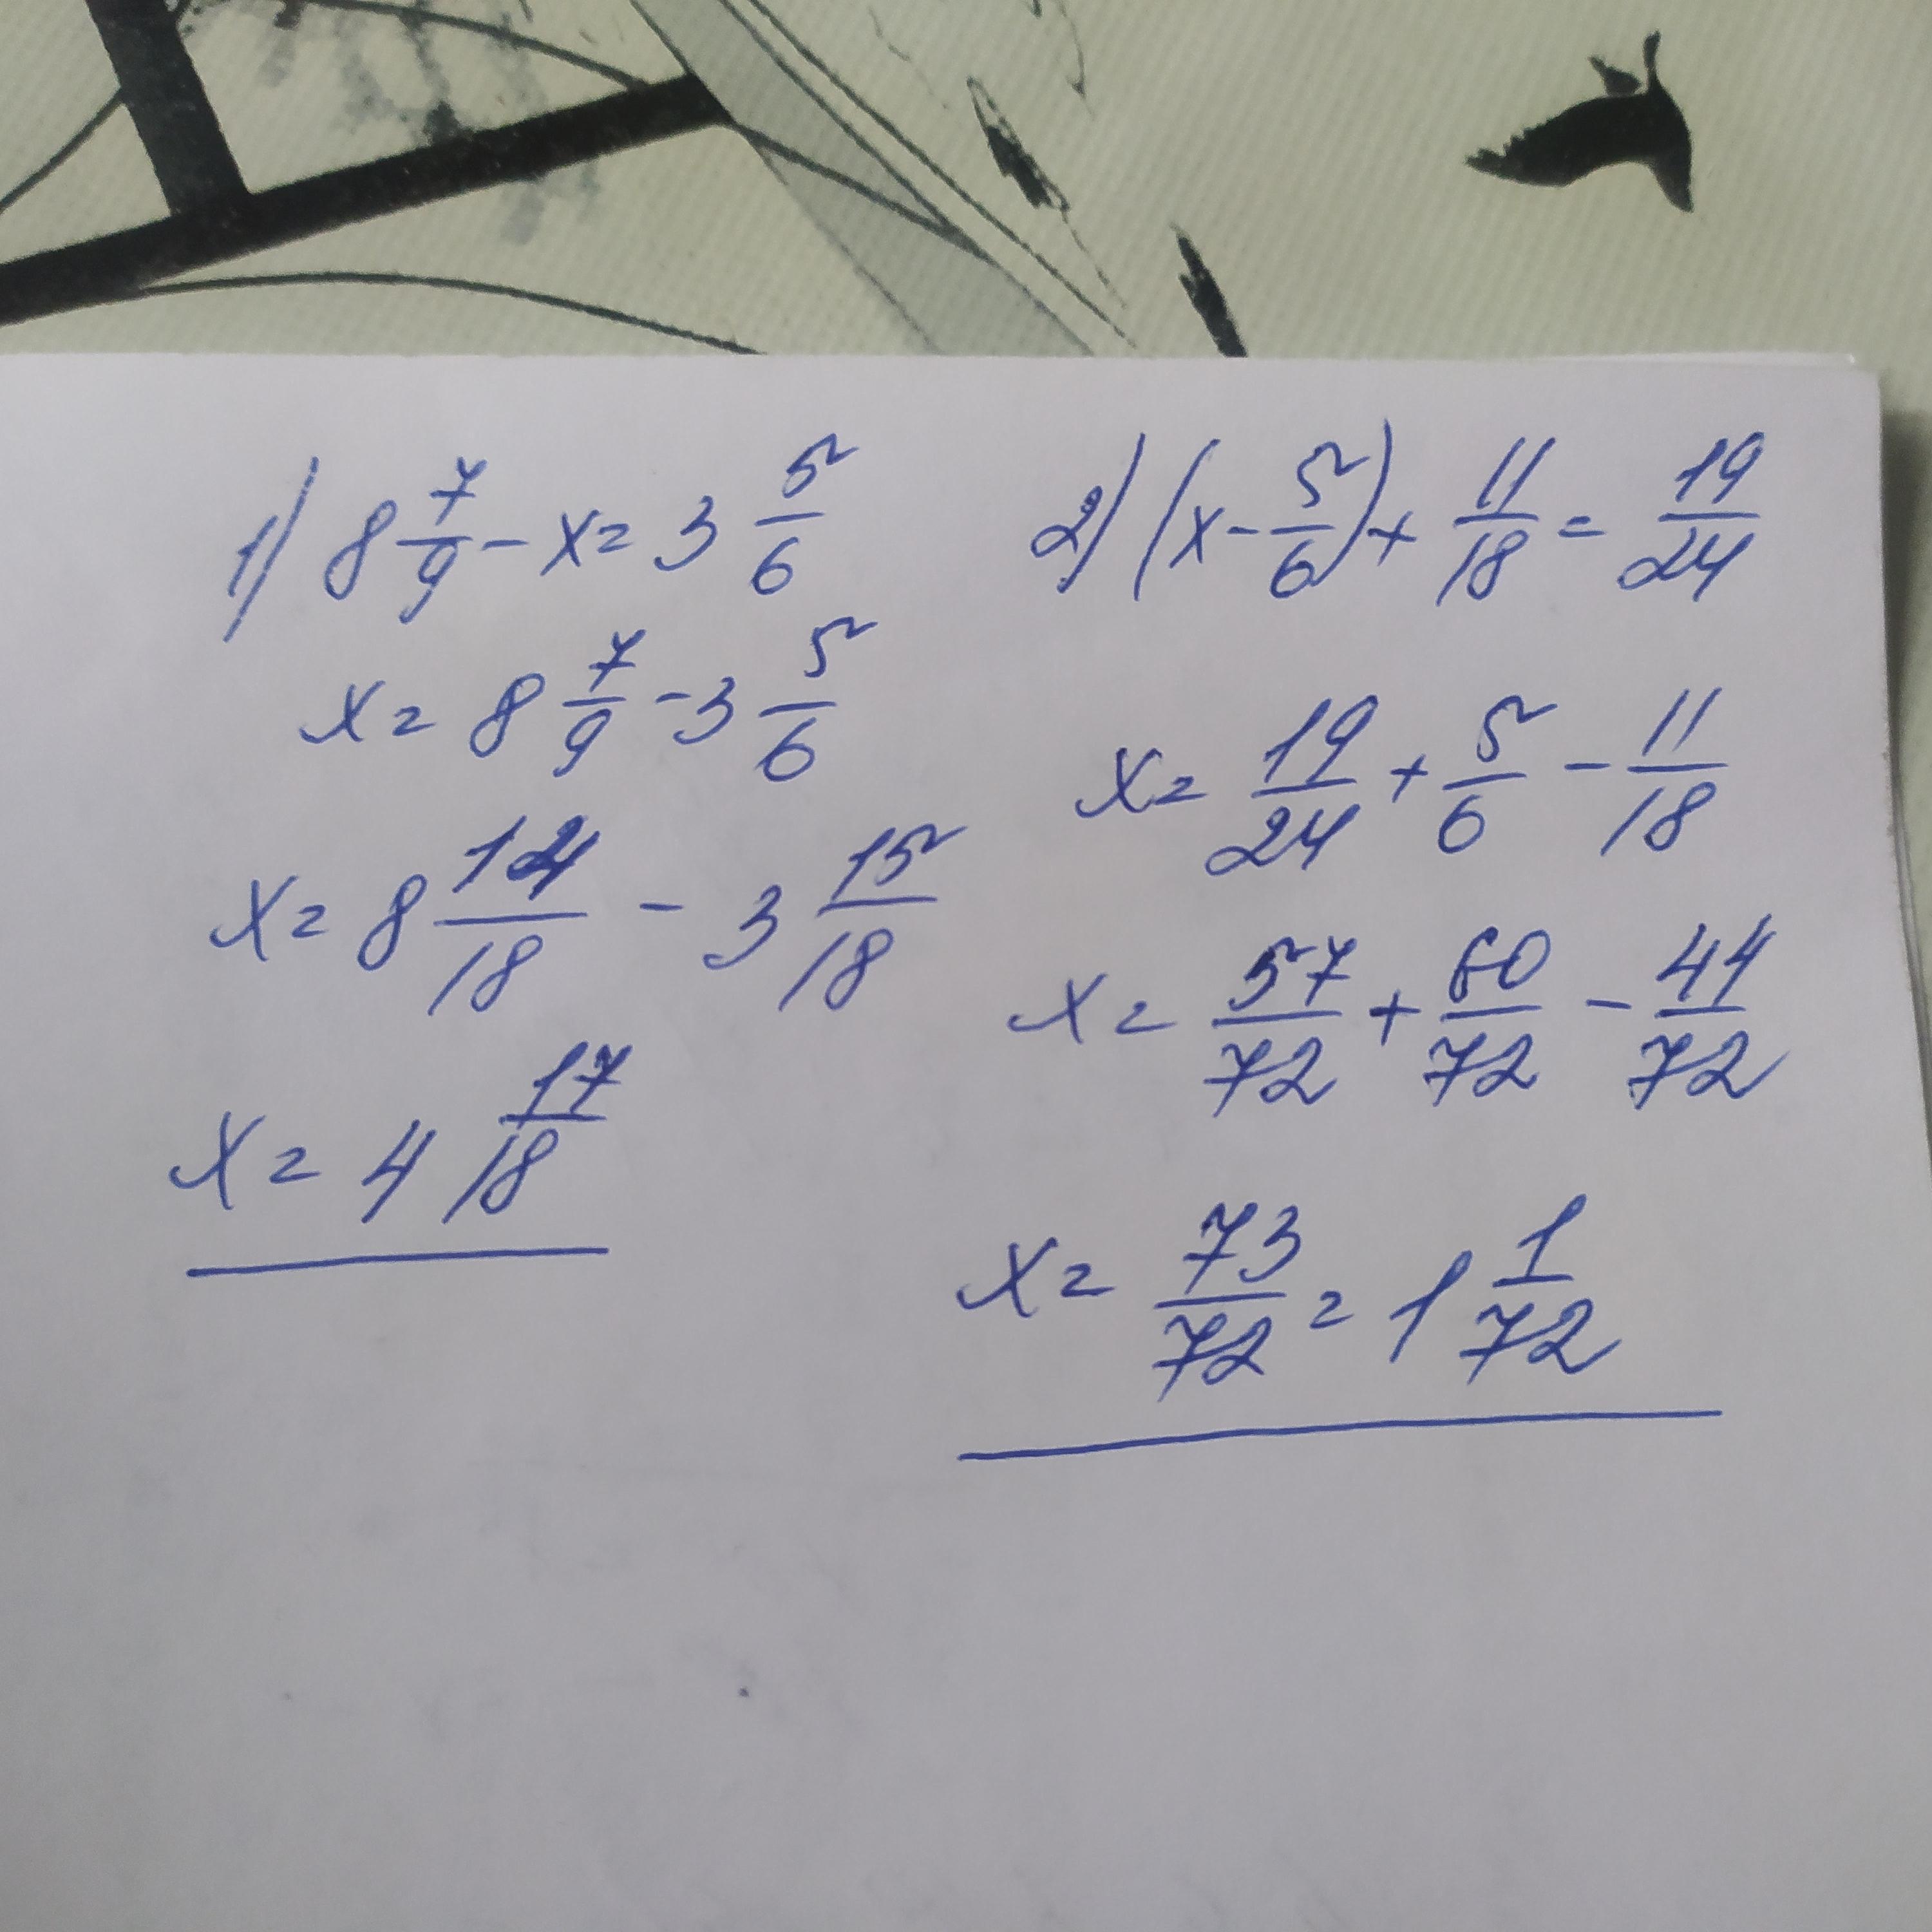 1) 8 7/9 - x = 3 5/6
x = 8 7/9 - 3 5/6
x = 8 14/18 - 3 15/18
x = 4 17/18
2) (x - 5/6) + 11/18 = 19/24
x = 19/24 + 5/6 - 11/18
x = 57/72 + 60/72 - 44/72
x = 73/72 = 1 1/72